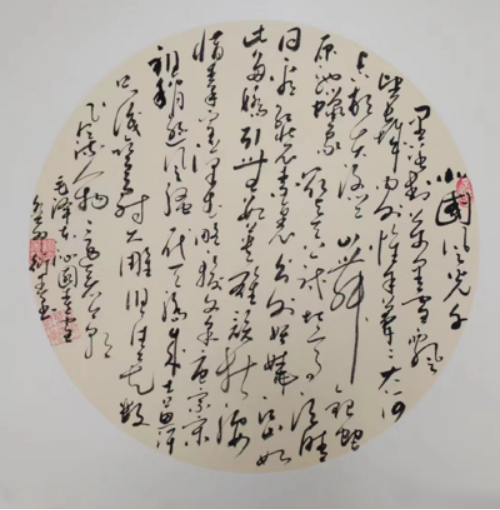 北国风光千
里冰封万里雪飘
望长城内外惟余莽莽大河
上下顿失滔滔山舞银蛇
原驰蜡象欲与天公试比高须晴
日看红装素裹分外妖娆江山如
此多娇引无数英雄竞折腰
惜秦皇汉武略输文采唐宗宋
祖稍逊风骚一代天骄成吉思汗
只识弯弓射大雕俱往矣数
风流人物还看今朝
毛泽东沁园春雪